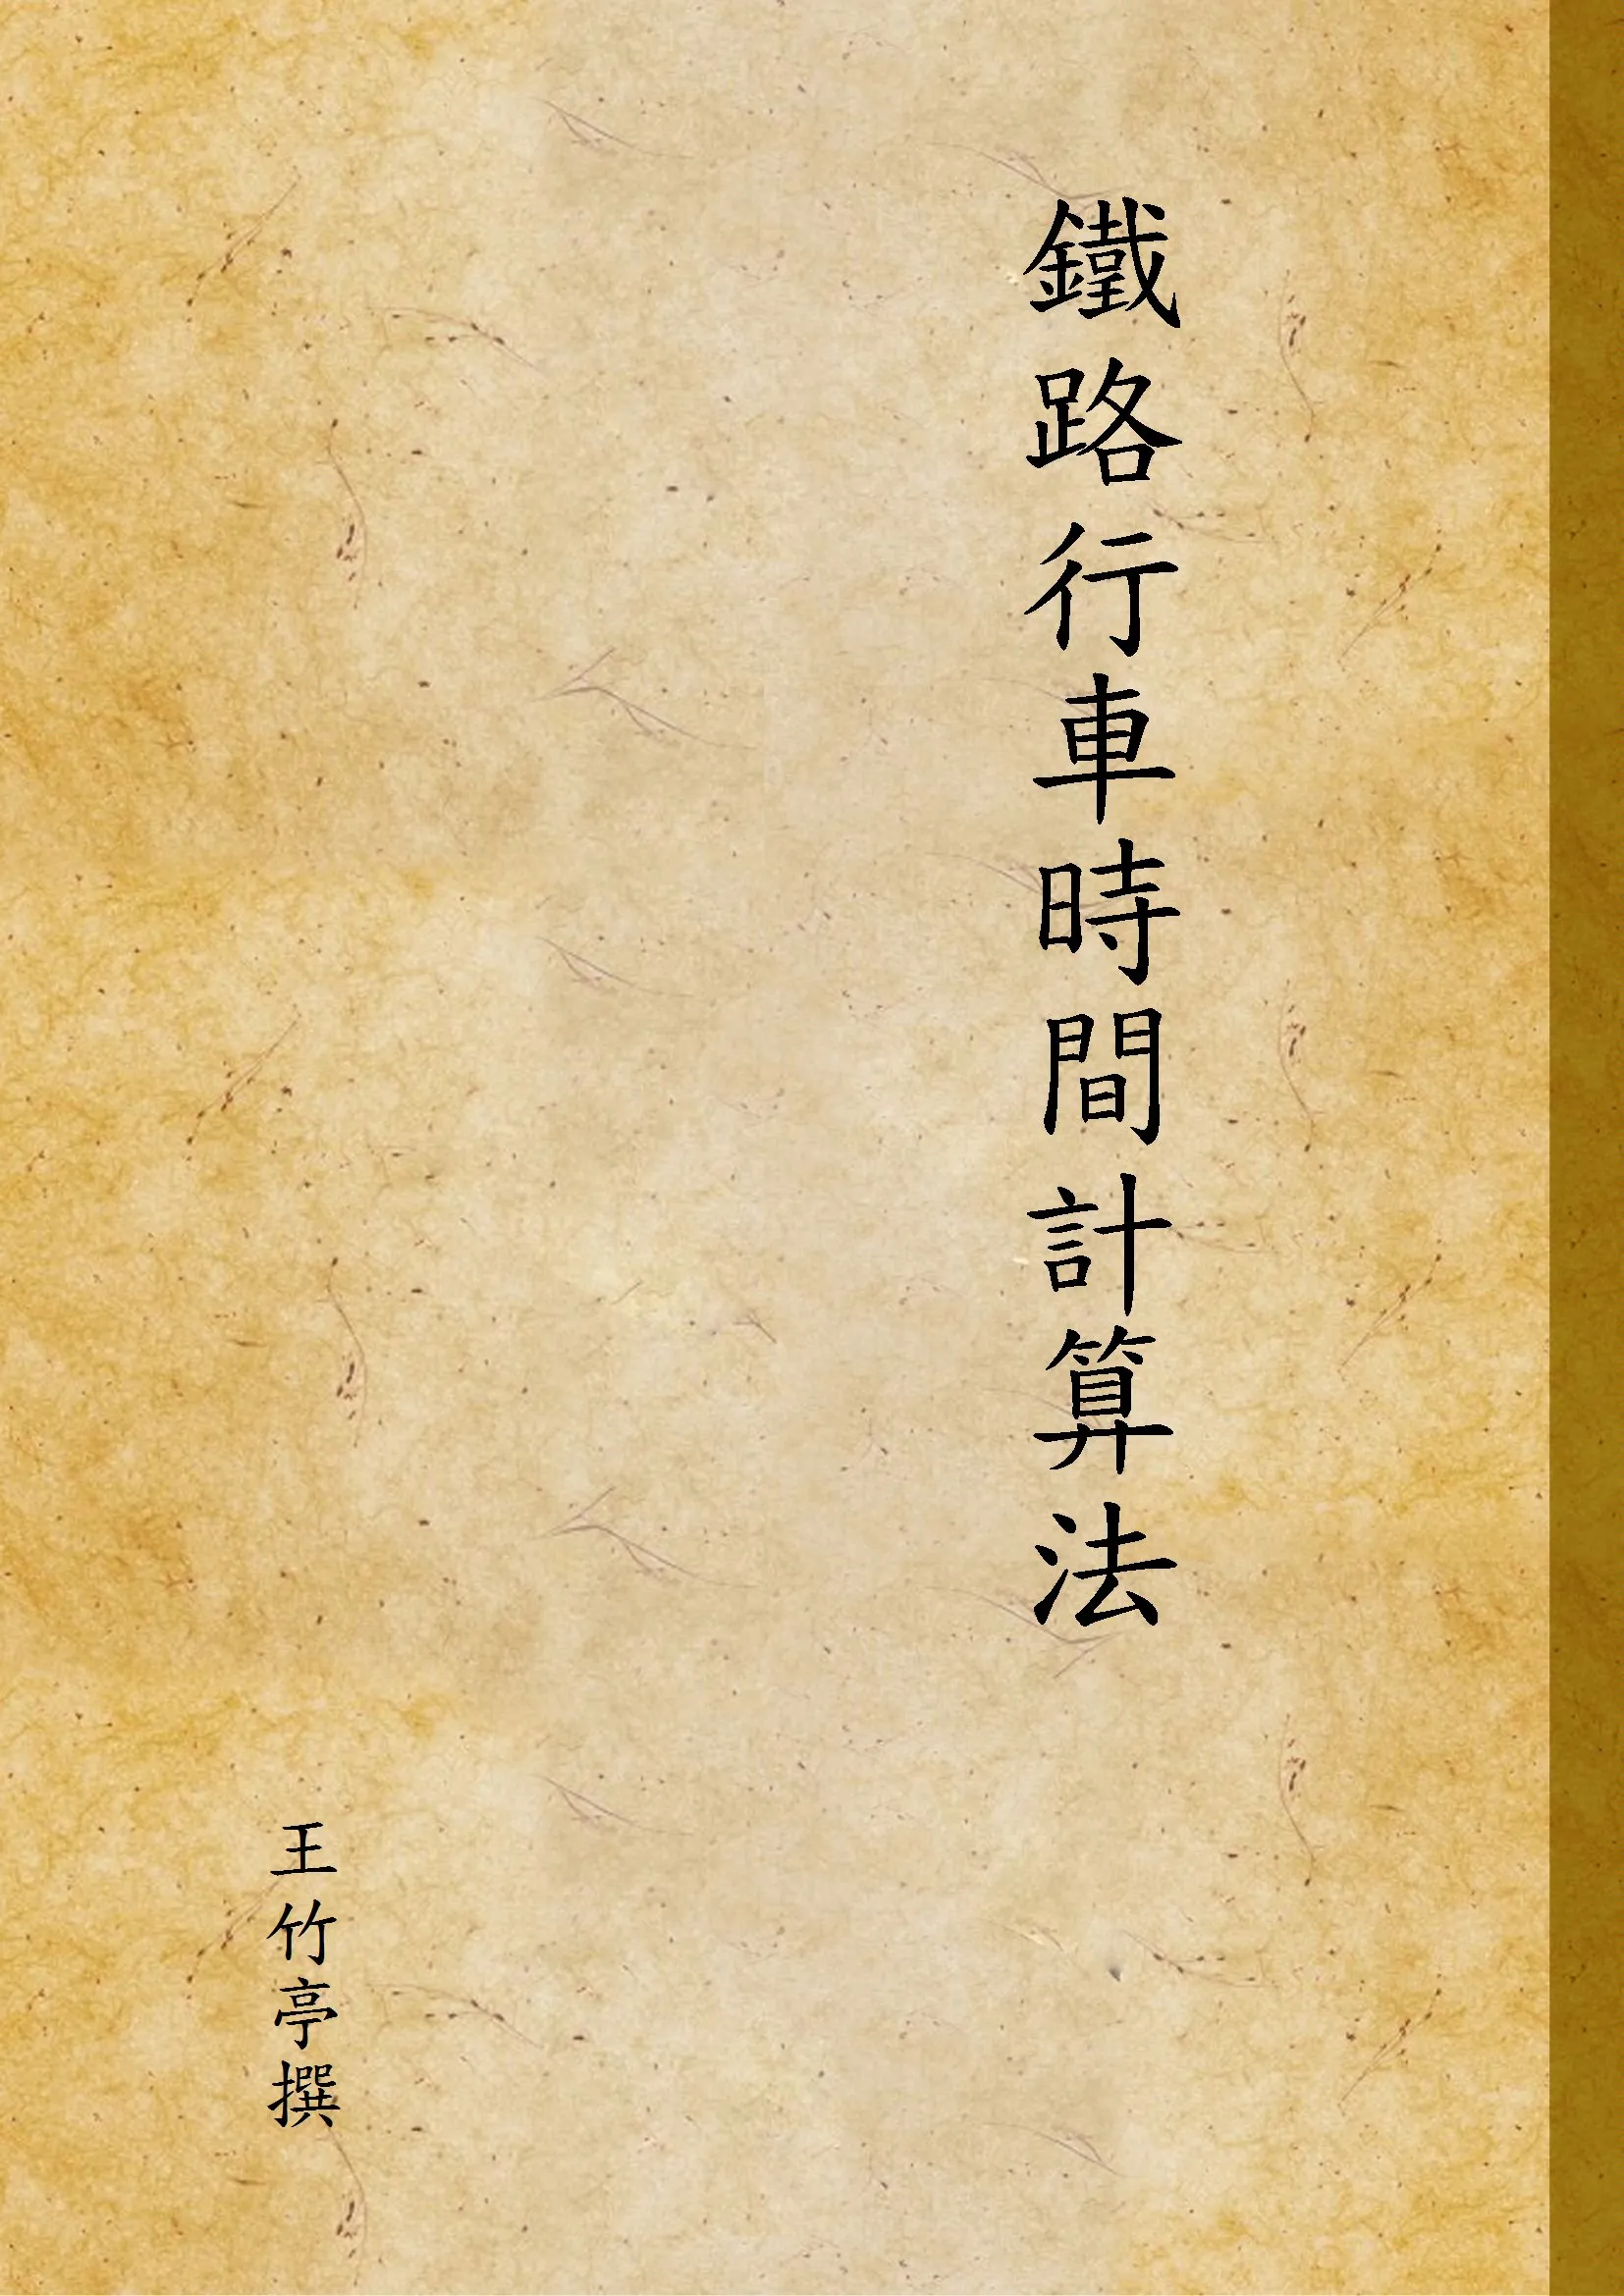 鐵路行車時間計算法
王竹亭撰